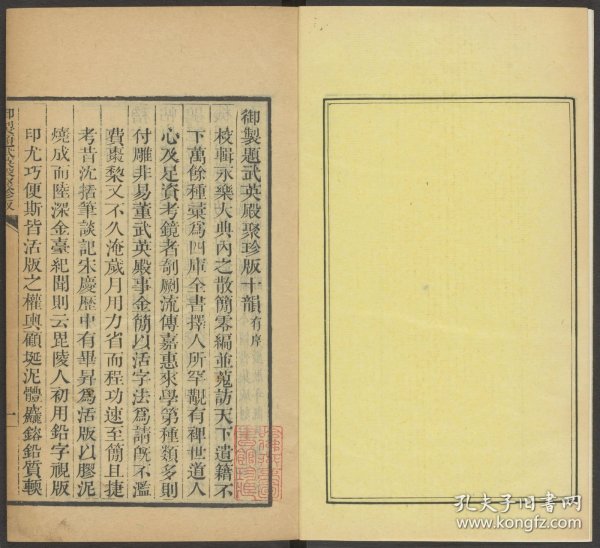 御製題武英殿聚珍版十韻有序
校輯永樂大典內之散簡零編並蒐訪天下遺籍不
下萬餘種彙爲四庫全書擇人所罕覯有裨世道人
心及足資考鏡者剞劂流傳嘉惠來學第種類多則
付雕非易董武英殿事金簡以活字法爲請旣不濫
費棗棃又不久淹歲月用力省而程功速至簡且捷
考昔沈括筆談記宋慶歷中有畢昇爲活版以膠泥
燒成而陸深金臺紀聞則云毘陵人初用鉛字視版
印尤巧便斯皆活版之權輿顧埏泥體麤鎔鉛質輭
一
孔夫子旧书网
www.kongfz.com